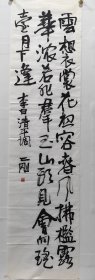 雲想衣裳花想容春风拂檻露
華濃若非羣玉山頭見會向瑶
臺月下逢 李白清平調